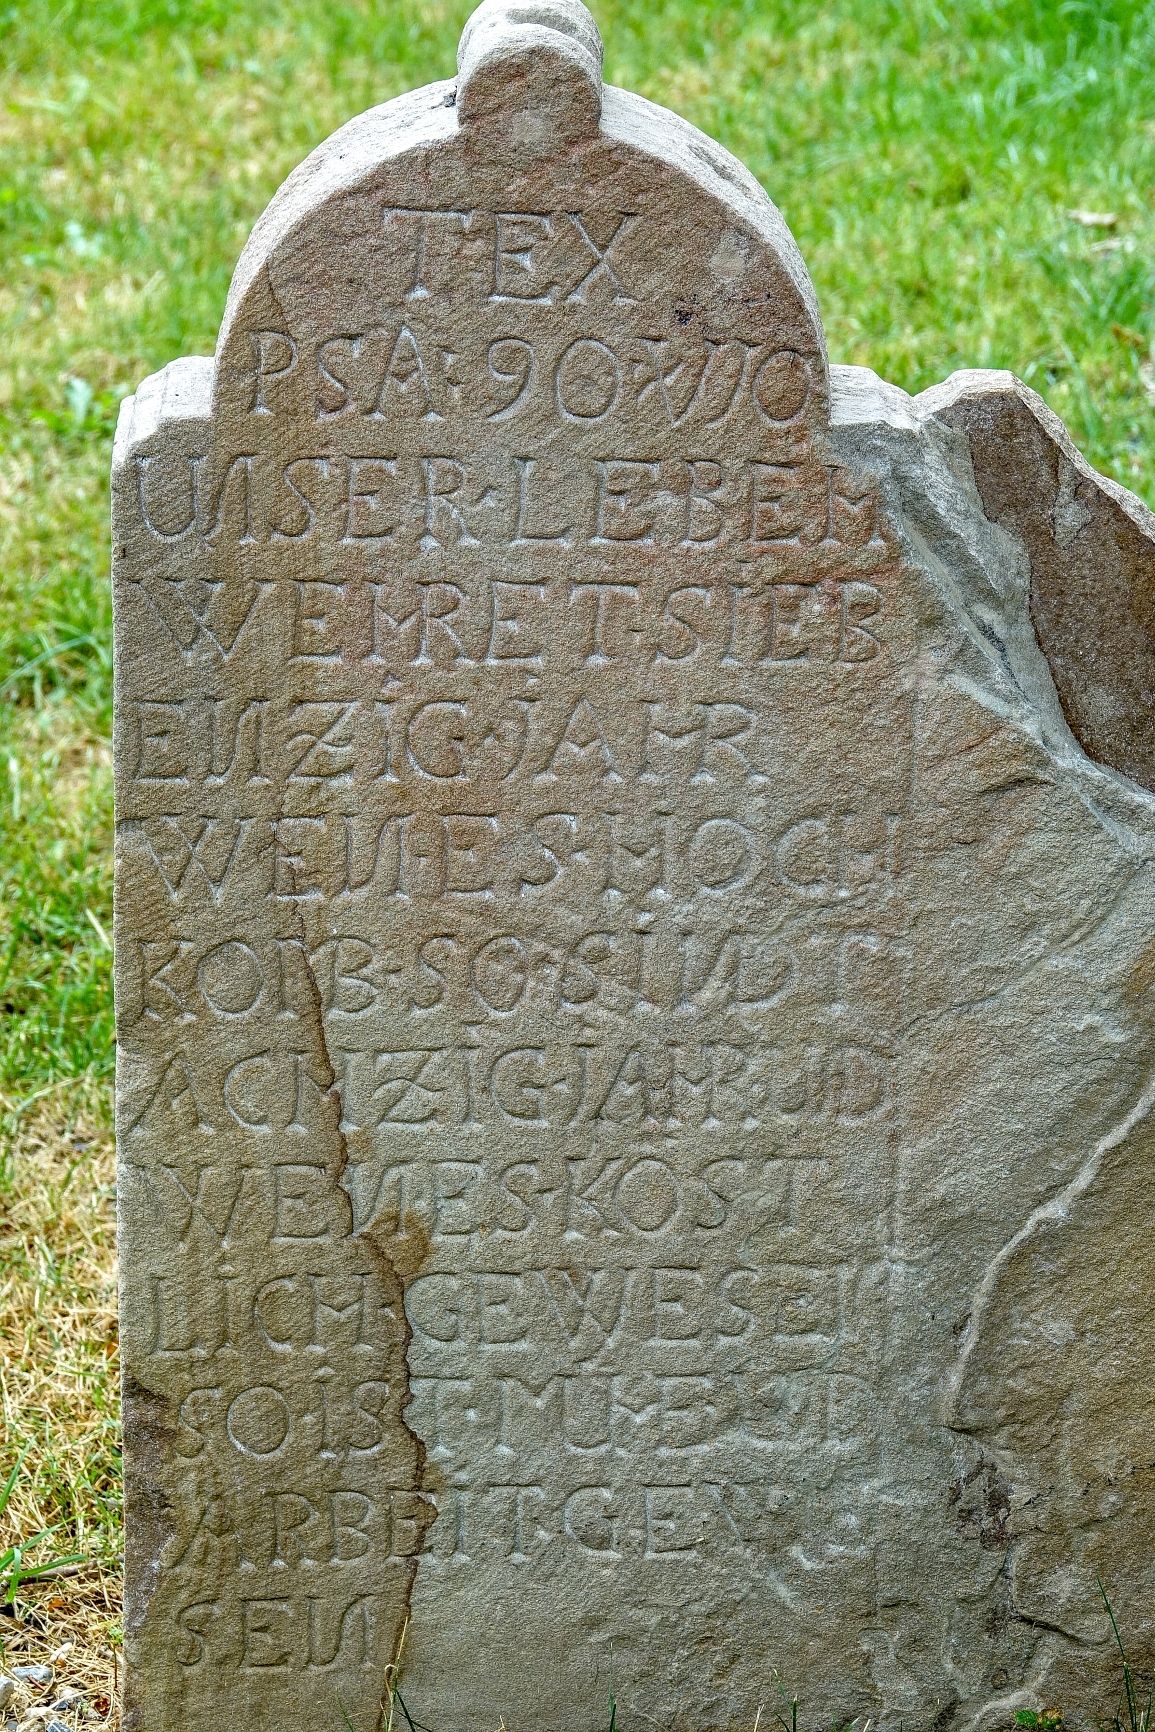 TEX
PSA: 90 X V 10
UNSER·LEBEM
WEHRET·SIEB
ENZIG·JAHR
WENES·HOCH
KOMB·SO·SINDT
ACHZIG·JAHR·UD
WENES·KOST
LICH·GEWESEN
SO·IST·MUE UD
ARBEIT·GEWE
SEN